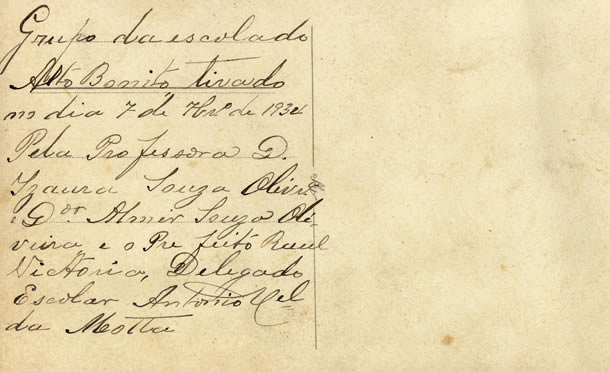 Grupo da escola do
Alto Bonito, tirado
no dia 7 de 7brº de 1934
Pela Professora D.
Izaura Souza Olivª
e Dor Almir Souza Oli-
veira, e o Prefeito Raul
Victoria, Delegado
Escolar Antonio
da Motta